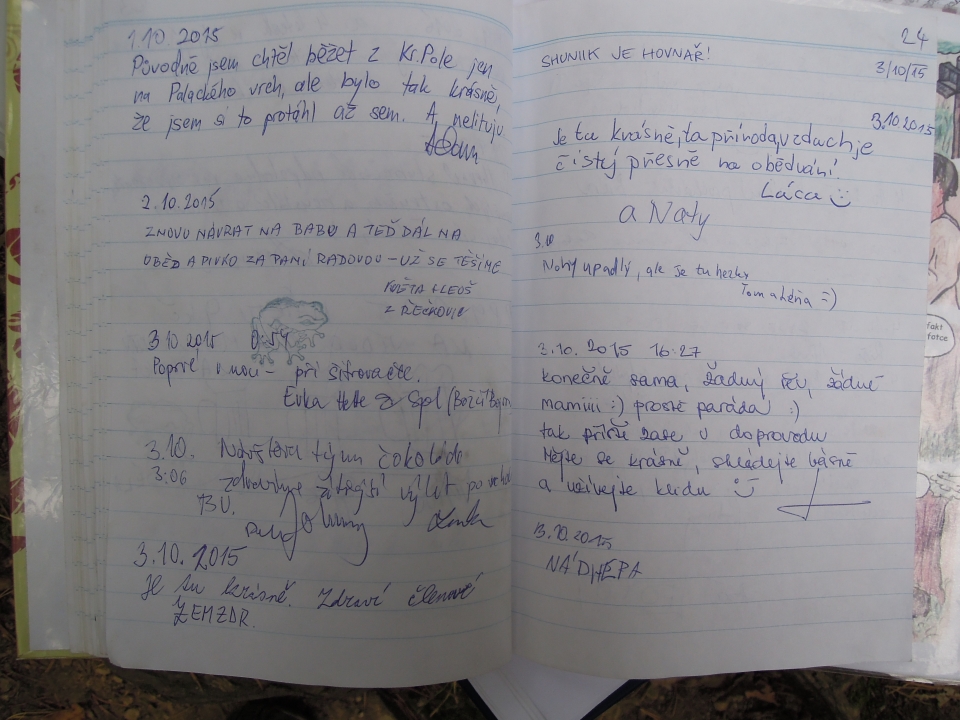 1.10 2015
Původně jsem chtěl běžet z Kr. Pole jen
na Palackého vrch, ale bylo tak krásně,
že jsem si to protáhl až sem. A nelituju
2.10.2015
ZNOVU NÁVRAT NA BABU A TEĎ DÁL NA
OBĚD A PIVKO ZA PANÍ RADOVOU - UŽ SE TĚŠÍME
Z ŘEČKOVIC
3 10 2015 0:54
Poprvé v noci - při šifrovačce.
Evka
3.10. tým čokoláda
3:06 výlet
3.10.2015
Je tu krásně. Zdraví členové
ZEMZDR.
24
SHUNIIK JE HOVNAŘ!
3/10/15
3.10 2015
Je tu krásně, ta příroda, vzduch je
čistej přesně na obědvání!
Láca
a Naty
3.10
Nohy upadly, ale je tu hezky
Tom a Léňa =)
3.10. 2015 16:27
konečně sama, žádný řev, žádné
mamiii :) prostě paráda :)
tak příště zase v doprovodu
Mějte se krásně, skládejte básně
a užívejte klidu
3.10.2015
NÁDHERA
fakt
fotce